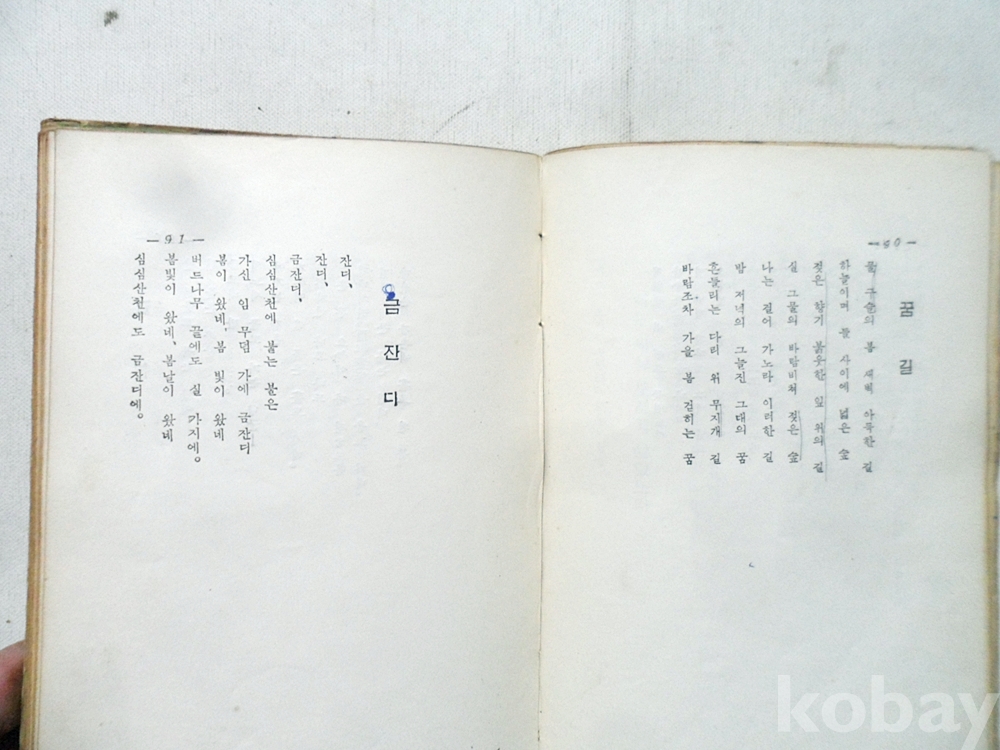 — 90 —
꿈 길
물 구슬의 봄 새벽 아득한 길
하늘이며 들 사이에 넓은 숲
젖은 향기 붉웃한 잎 위의 길
실 그물의 바람비쳐 젖은 숲
나는 걸어 가노라 이러한 길
밤 저녁의 그늘진 그대의 꿈
흔들리는 다리 위 무지개 길
바람조차 가을 봄 걷히는 꿈
— 91 —
금 잔 디
잔디,
잔디,
금잔디,
심심산천에 붙는 불은
가신 임 무덤 가에 금잔디
봄이 왔네, 봄 빛이 왔네
버드나무 끝에도 실 가지에。
봄빛이 왔네, 봄날이 왔네
심심산천에도 금잔디에。
kobay